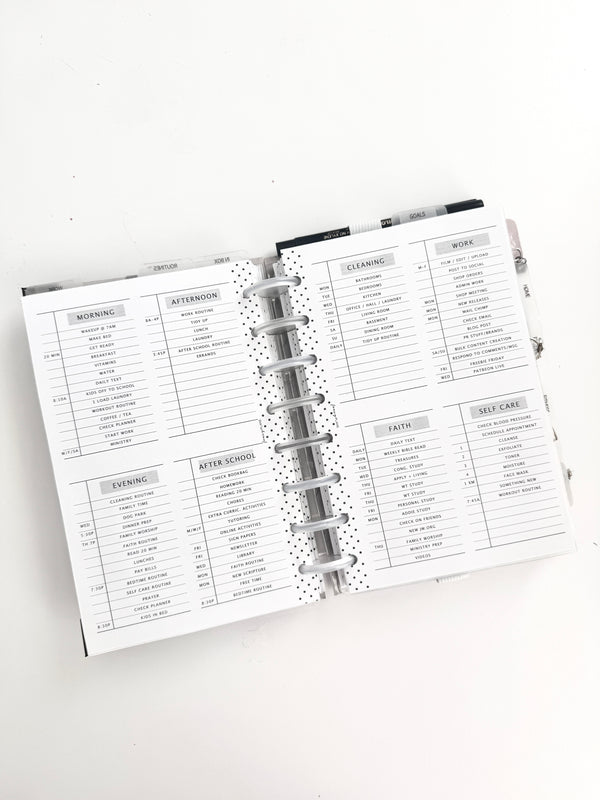 GOALS
ROUTINES
MORNING
WAKEUP @ 7AM
MAKE BED
GET READY
20 MIN BREAKFAST
VITAMINS
WATER
DAILY TEXT
8:10A KIDS OFF TO SCHOOL
1 LOAD LAUNDRY
WORKOUT ROUTINE
COFFEE / TEA
CHECK PLANNER
START WORK
M/F/SA MINISTRY
AFTERNOON
8A-4P WORK ROUTINE
TIDY UP
LUNCH
LAUNDRY
3:45P AFTER SCHOOL ROUTINE
ERRANDS
EVENING
CLEANING ROUTINE
FAMILY TIME
WED DOG PARK
5:30P DINNER PREP
TH 7P FAMILY WORSHIP
FAITH ROUTINE
READ 20 MIN
LUNCHES
PAY BILLS
7:30P BEDTIME ROUTINE
SELF CARE ROUTINE
PRAYER
CHECK PLANNER
8:30P KIDS IN BED
AFTER SCHOOL
CHECK BOOKBAG
HOMEWORK
READING 20 MIN
CHORES
EXTRA CURRIC. ACTIVITIES
TUTORING
M/W/F ONLINE ACTIVITIES
FRI SIGN PAPERS
FRI NEWSLETTER
WED LIBRARY
MON FAITH ROUTINE
MON NEW SCRIPTURE
FREE TIME
8:30P BEDTIME ROUTINE
CLEANING
MON BATHROOMS
TUE BEDROOMS
WED KITCHEN
THU OFFICE / HALL / LAUNDRY
FRI LIVING ROOM
SA BASEMENT
SU DINING ROOM
DAILY TIDY UP ROUTINE
WORK
M-F FILM / EDIT / UPLOAD
POST TO SOCIAL
SHOP ORDERS
ADMIN WORK
MON SHOP MEETING
MON NEW RELEASES
WED MAIL CHIMP
CHECK EMAIL
BLOG POST
PR STUFF/BRANDS
SA/SU BULK CONTENT CREATION
RESPOND TO COMMENTS/MSG.
FRI FREEBIE FRIDAY
WED PATREON LIVE
FAITH
DAILY DAILY TEXT
MON WEEKLY BIBLE READ
TUE TREASURES
WED CONG. STUDY
THU APPLY + LIVING
FRI WT STUDY
THU MY STUDY
FRI PERSONAL STUDY
MON ADDIE STUDY
CHECK ON FRIENDS
NEW JW.ORG
THU FAMILY WORSHIP
MINISTRY PREP
VIDEOS
SELF CARE
CHECK BLOOD PRESSURE
SCHEDULE APPOINTMENT
1 CLEANSE
2 EXFOLIATE
3 TONER
4 MOISTURE
FACE MASK
SOMETHING NEW
7:45A WORKOUT ROUTINE